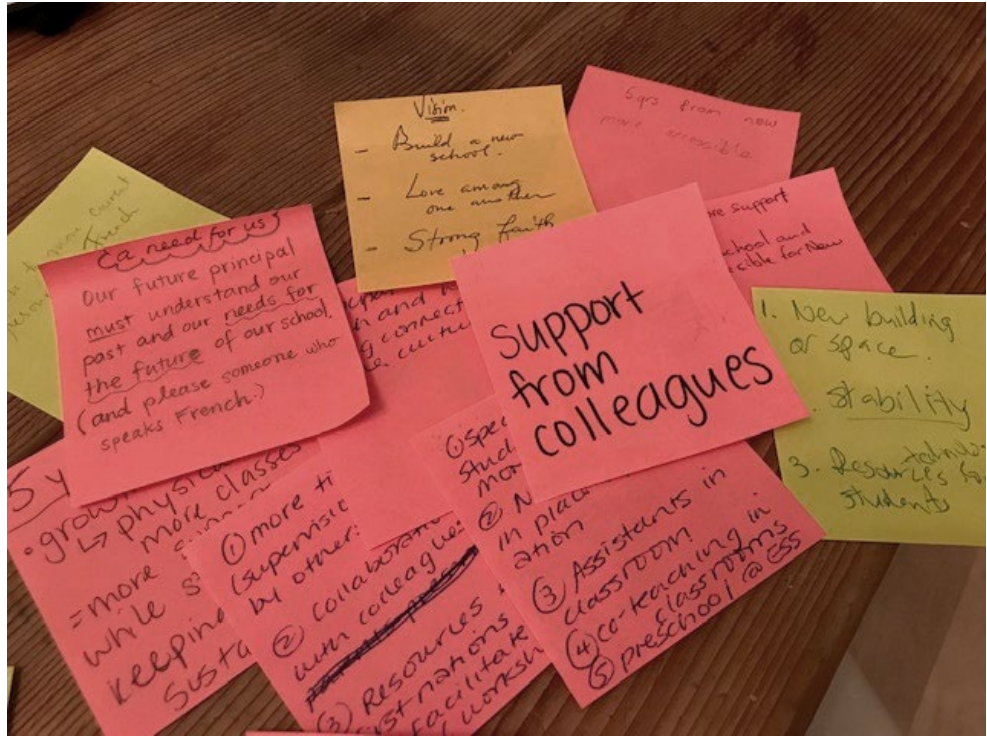 Vision.
- Build a new
school.
- Love among
one another
- Strong faith
5 yrs from now
more accessible
more current
French
(a need for us)
Our future principal
must understand our
past and our needs for
the future of our school.
(and please someone who
speaks French.)
support
from
colleagues
support
school and
for New
and
connect
1. New building
or space.
Stability
3. Resources
students
5 y
growt
↳ physic
more classes
= more
while s
keeping
susta
① more ti
(supervisi
by other
② collaboratio
with colleague
③ Resources
st nations
facilitate
worksh
① spe
stud
mo
② N
in plac
ation
③ Assistants in
classroom
④ co-teaching in
classrooms
⑤ preschool @ ESS